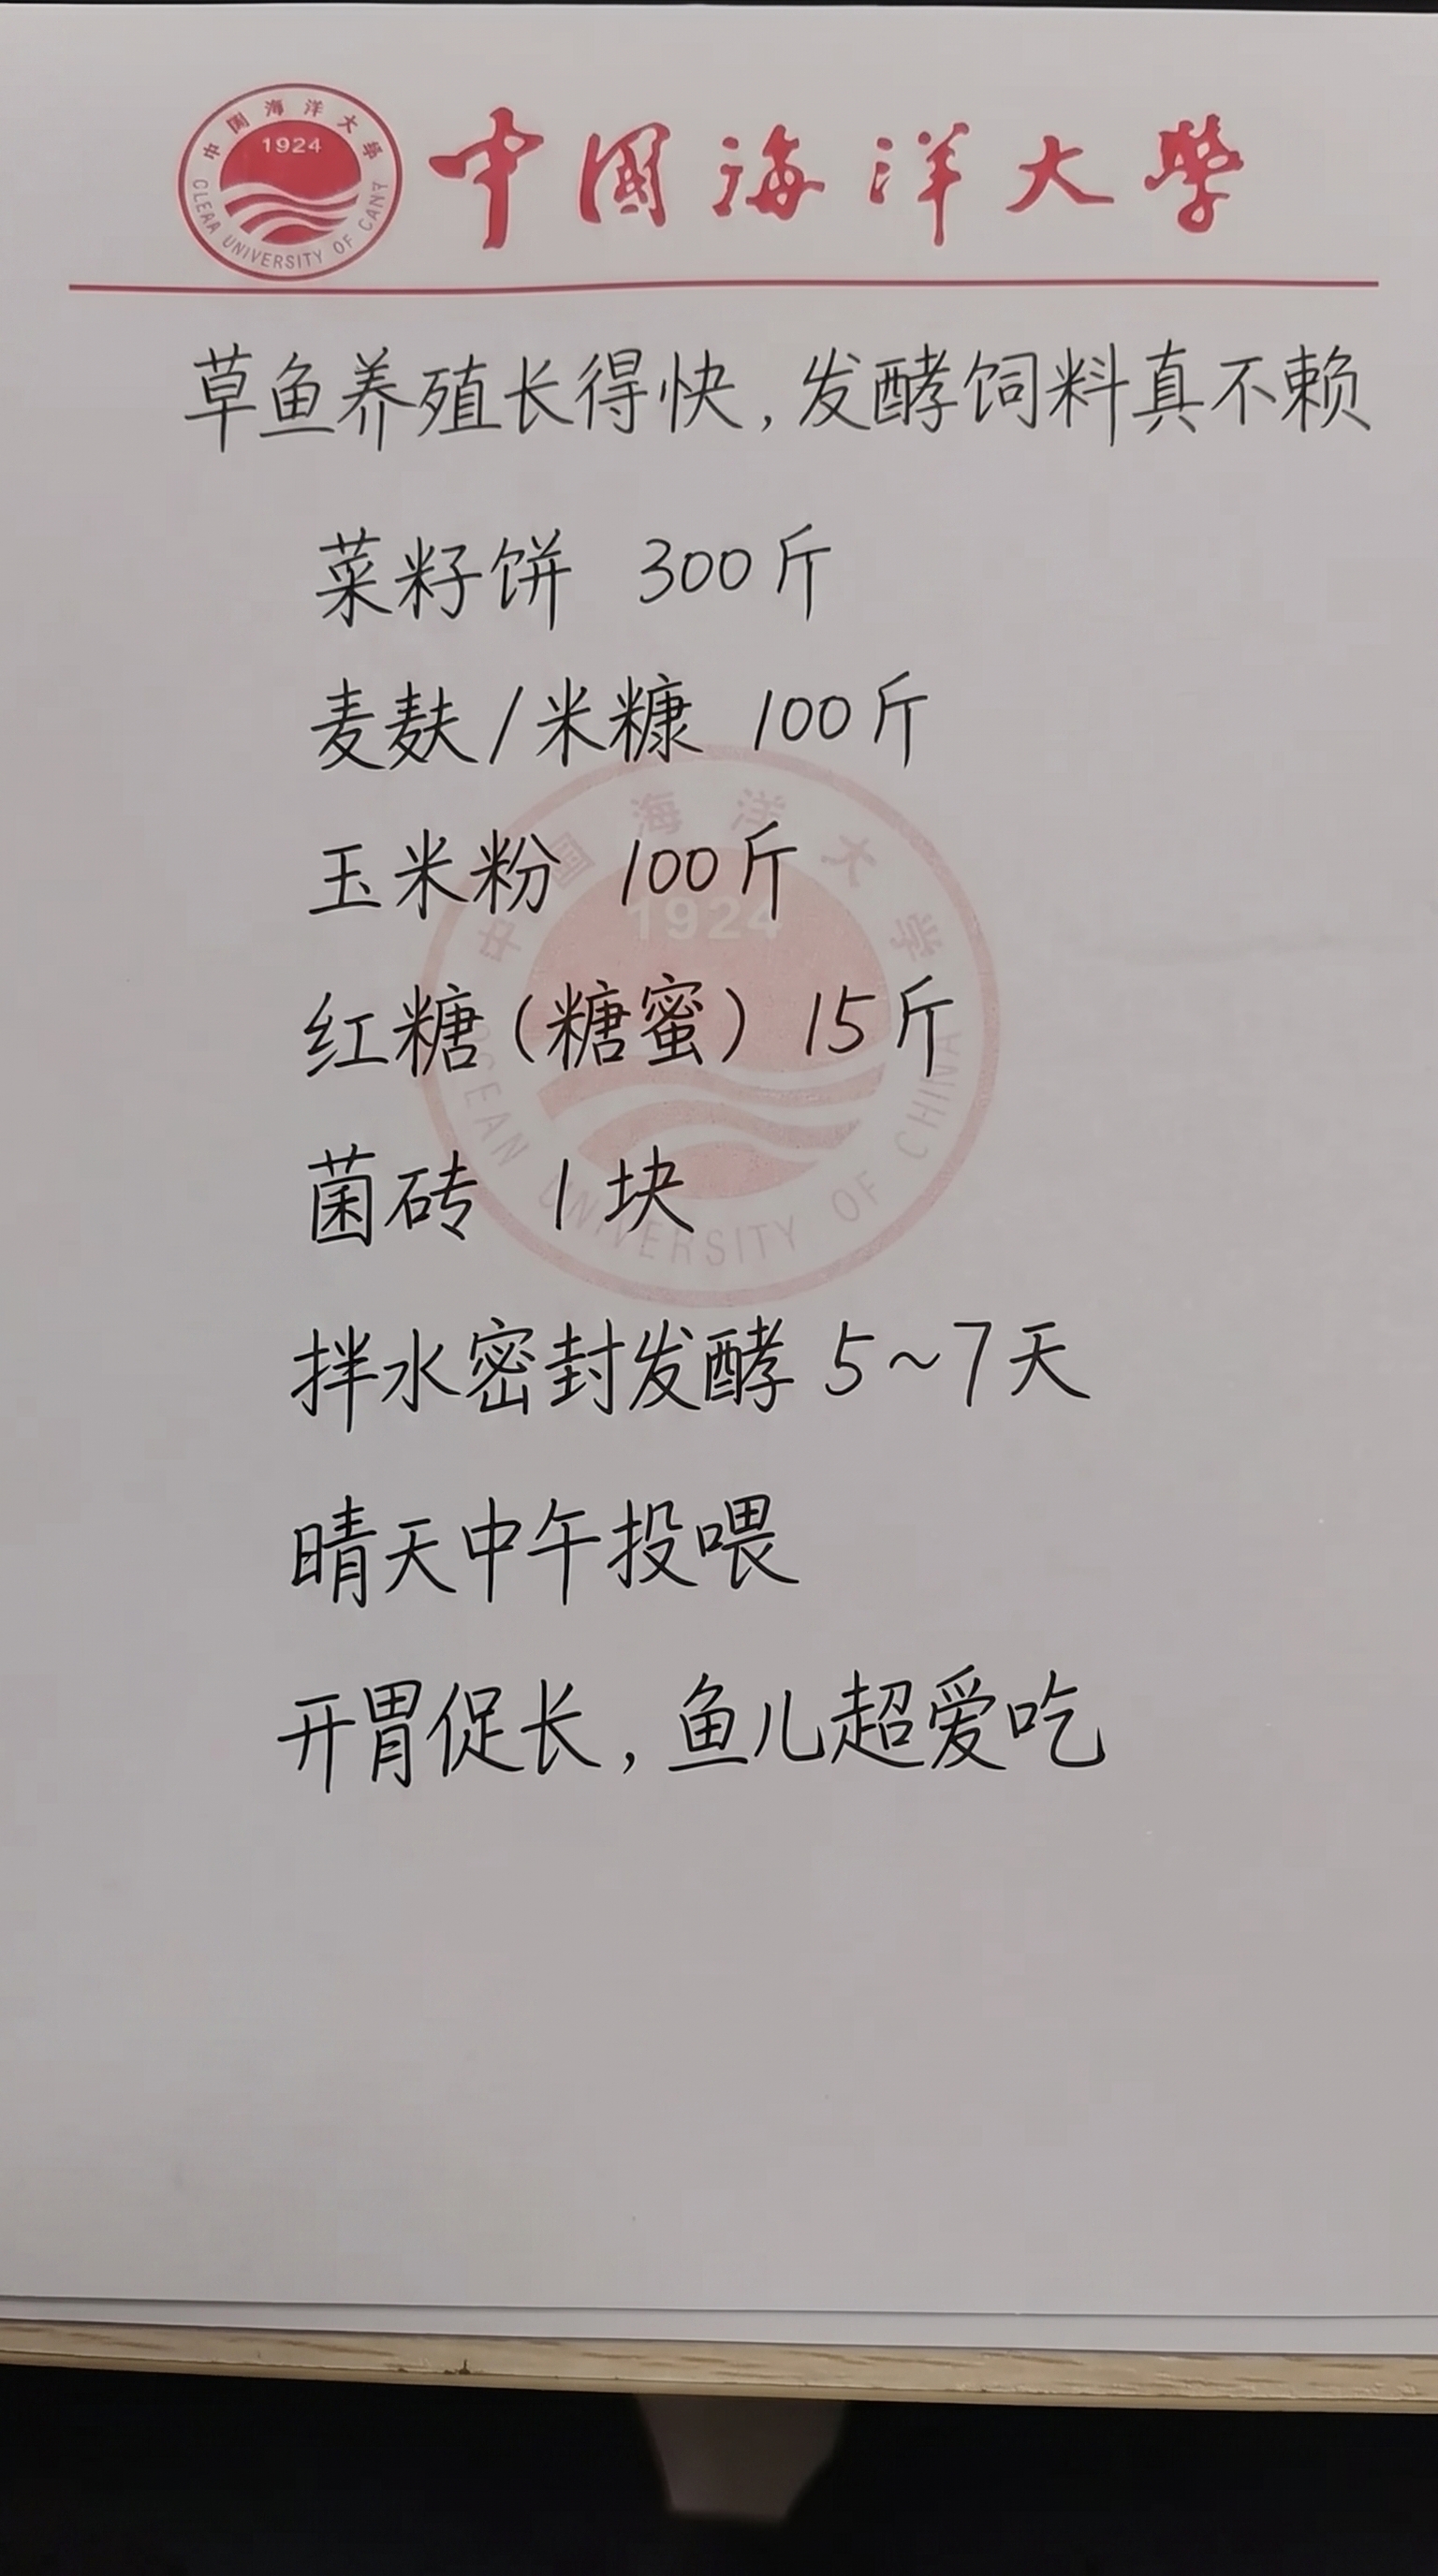 中国海洋大學
1924
CLEAA UNIVERSITY OF CANY
中國海洋大學
草鱼养殖长得快,发酵饲料真不赖
菜籽饼 300斤
麦麸/米糠 100斤
玉米粉 100斤
红糖(糖蜜) 15斤
菌砖 1块
拌水密封发酵 5~7天
晴天中午投喂
开胃促长,鱼儿超爱吃
中国海洋大学
1924
OCEAN UNIVERSITY OF CHINA